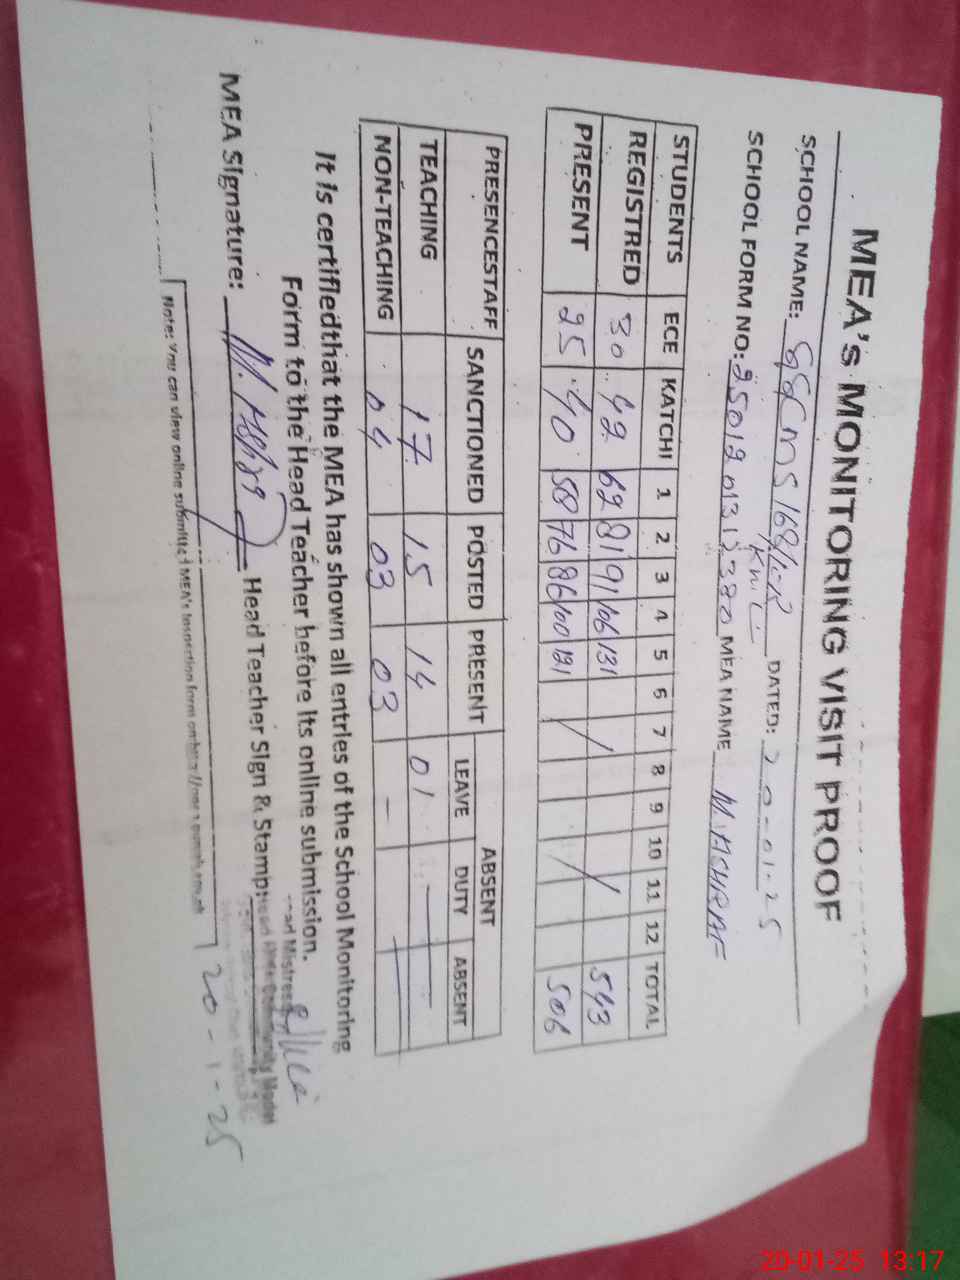 MEA's MONITORING VISIT PROOF
SCHOOL NAME: GGCMS 168/ DATED: 20-01-25
KWL
SCHOOL FORM NO: MEA NAME M. ASHRAF
STUDENTS ECE KATCHI 1 2 3 4 5 6 7 8 9 10 11 12 TOTAL
REGISTRED 30 42 62 81 91 106 131 543
PRESENT 25 40 58 76 86 100 121 506
PRESENCESTAFF SANCTIONED POSTED PRESENT ABSENT
LEAVE DUTY ABSENT
TEACHING 17 15 14 01 — —
NON-TEACHING 04 03 03 - —
It is certifiedthat the MEA has shown all entries of the School Monitoring
Form to the Head Teacher before its online submission.
MEA Signature: M. Ashraf Head Teacher Sign & Stamp:
Head Mistress
Community Model
20-1-25
Note: You can view online submitted MEA's Inspection form on
20-01-25 13:17